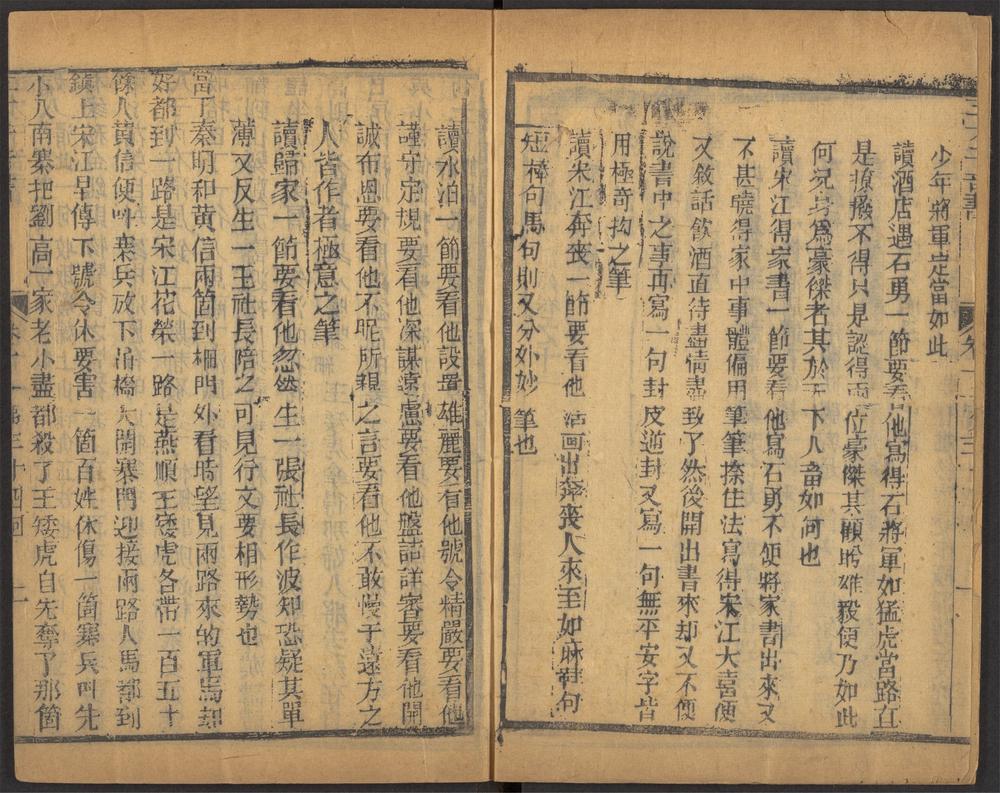 少年將軍定當如此
讀酒店遇石勇一節要看他寫得石將軍如猛虎當路直
是撩撥不得只是認得兩位豪傑其顧盼雄毅便乃如此
何况身爲豪傑者其於天下人當如何也
讀宋江得家書一節要看他寫石勇不便將家書出來又
不甚曉得家中事體偏用筆筆捺住法寫得宋江大喜便
又敘話飲酒直待盡情盡致了然後開出書來却又不便
說書中之事再寫一句封皮逆封又寫一句無平安字皆
用極奇拗之筆
讀宋江奔喪一節要看他活画出奔喪人來至如麻鞋句
短棒句馬句則又分外妙筆也
讀水泊一節要看他設置雄麗要看他號令精嚴要看他
謹守定規要看他深謀遠慮要看他盤詰詳審要看他開
誠布恩要看他不昵所親之言要看他不敢慢于遠方之
人皆作者極意之筆
讀歸家一節要看他忽然生一張社長作波却恐疑其單
薄又反生一王社長陪之可見行文要相形勢也
當下秦明和黄信兩箇到柵門外看時望見兩路來的軍馬却
好都到一路是宋江花榮一路是燕順王矮虎各帶一百五十
餘人黄信便呌寨兵放下吊橋大開寨門迎接兩路人馬都到
鎮上宋江早傳下號令休要害一箇百姓休傷一箇寨兵叫先
小入南寨把劉高一家老小盡都殺了王矮虎自先奪了那箇
第三十四回